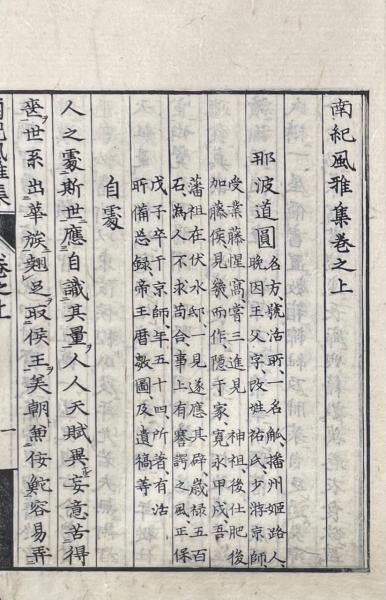 南紀風雅集卷之上
那波道圓
名方、號活所、一名觚、播州姬路人、
晚因王父字、改姓祐氏、少游京師、
受業藤惺窩、嘗三進見 神祖、後仕肥後
加藤侯、見幾而作、隱于家、寬永甲戌、吾
藩祖在伏水邸、一見遂應其辟、歲祿五百
石、為人不求苟合、事上有謇諤之風、正保
戊子卒于京師、年五十四、所著、有活
所備忘錄、帝王曆數圖、及遺稿等
自處
人之處斯世應自識其量人人天賦異妄意苦得
喪世系出華族翹足取侯王美朝兼佞鮀容易弄
南紀風雅集
卷之上
一